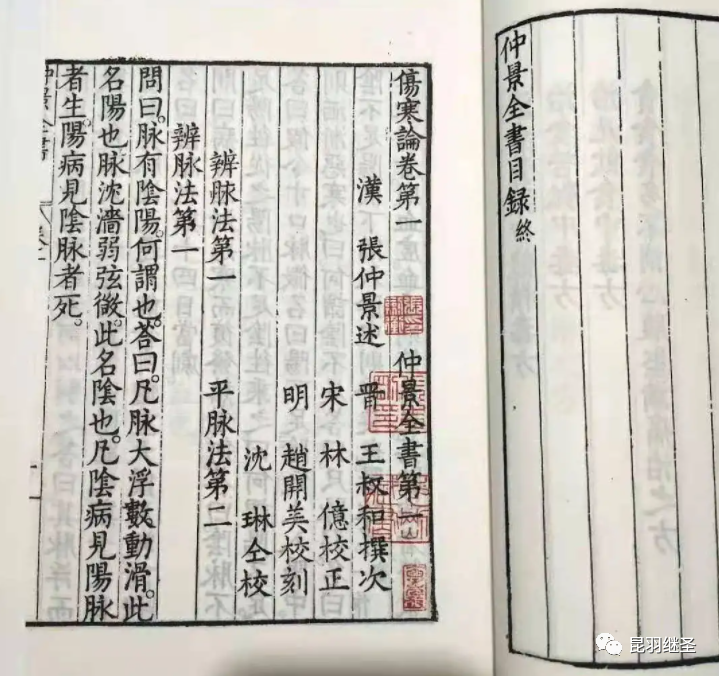 仲景全書目録終
傷寒論卷第一　仲景全書第一
漢　張仲景述　晉　王叔和撰次
宋　林　億校正
明　趙開美校刻
沈　琳仝校
辨脉法第一　平脉法第二
辨脉法第一
問曰。脉有陰陽。何謂也。荅曰。凡脉大浮數動滑。此
名陽也。脉沈濇弱弦微。此名陰也。凡陰病見陽脉
者生。陽病見陰脉者死。
昆羽继圣